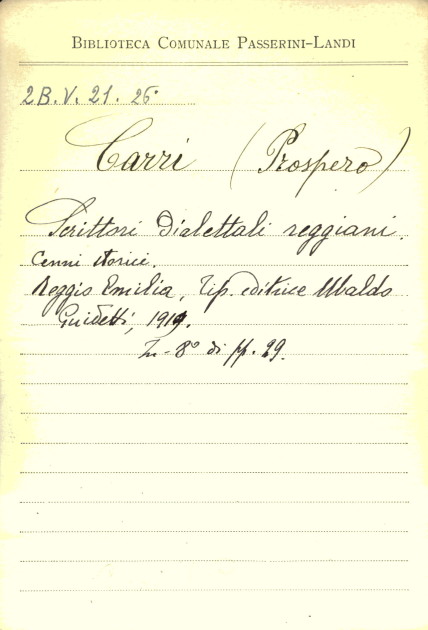 BIBLIOTECA COMUNALE PASSERINI-LANDI
2B.V. 21. 26.
Carri (Prospero)
Scrittori dialettali reggiani.
Cenni storici.
Reggio Emilia, Tip. editrice Ubaldo
Guidetti, 1919.
In-8° di pp. 29.